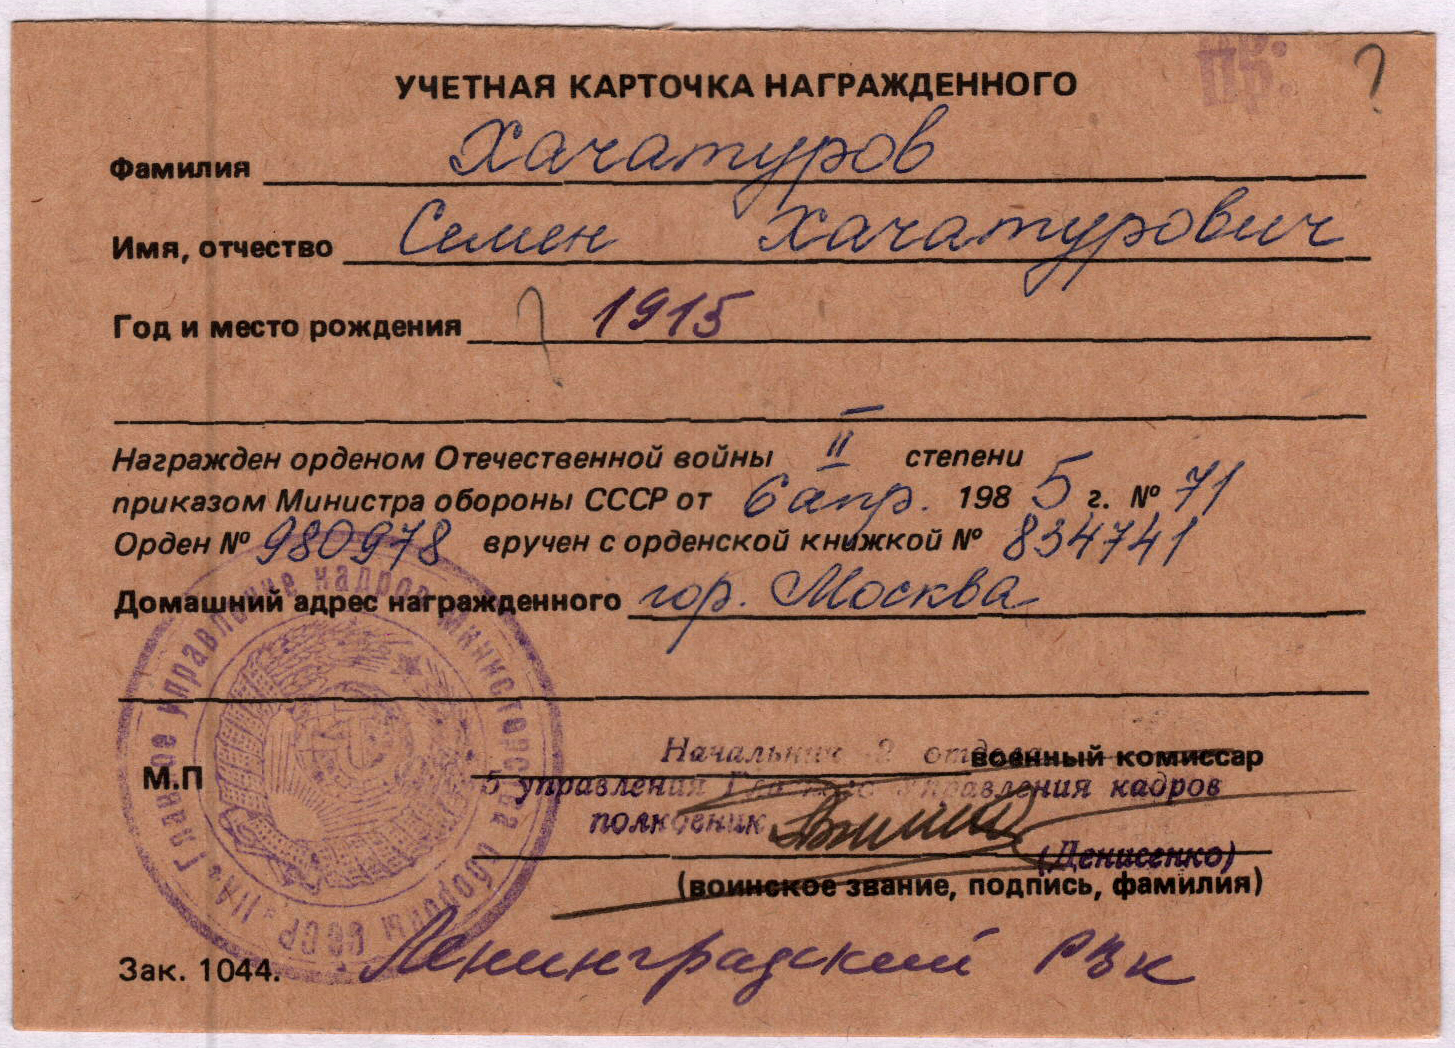 Пр.
?
УЧЕТНАЯ КАРТОЧКА НАГРАЖДЕННОГО
Фамилия Хачатуров
Имя, отчество Семен Хачатурович
Год и место рождения ? 1915
Награжден орденом Отечественной войны II степени
приказом Министра обороны СССР от 6 апр. 1985 г. № 71
Орден № 980978 вручен с орденской книжкой № 834741
Домашний адрес награжденного гор. Москва
Главное управление кадров Министерства обороны СССР
Начальник 2 отдела военный комиссар
М.П 5 управления Главного управления кадров
полковник
(Денисенко)
(воинское звание, подпись, фамилия)
Зак. 1044. Ленинградский РВК